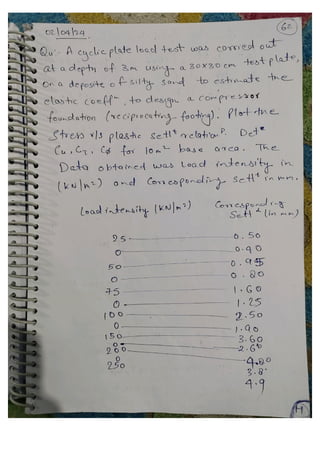 02/04/24
62
Qu:- A cyclic plate load test was carried out
at a depth of 3m using a 30x30 cm test plate,
on a deposite of silty sand to estimate the
elastic coeffⁿ, to design a compressor
foundation (reciprocating footing). Plot the
Stress v/s plastic setlᵗ relationᵖ. Detᵉ
Cu, Cτ, Cφ for 10m² base area. The
Data obtained was load intensity in
(kN/m²) and Corresponding setlᵗ in mm.
load intensity (kN/m²) Corresponding
Setlᵗ (in mm)
25 0.50
0 0.40
50 0.95
0 0.80
75 1.60
0 1.25
100 2.50
0 1.90
150 3.60
0 2.60
200 4.80
0 3.8
250 4.9
H